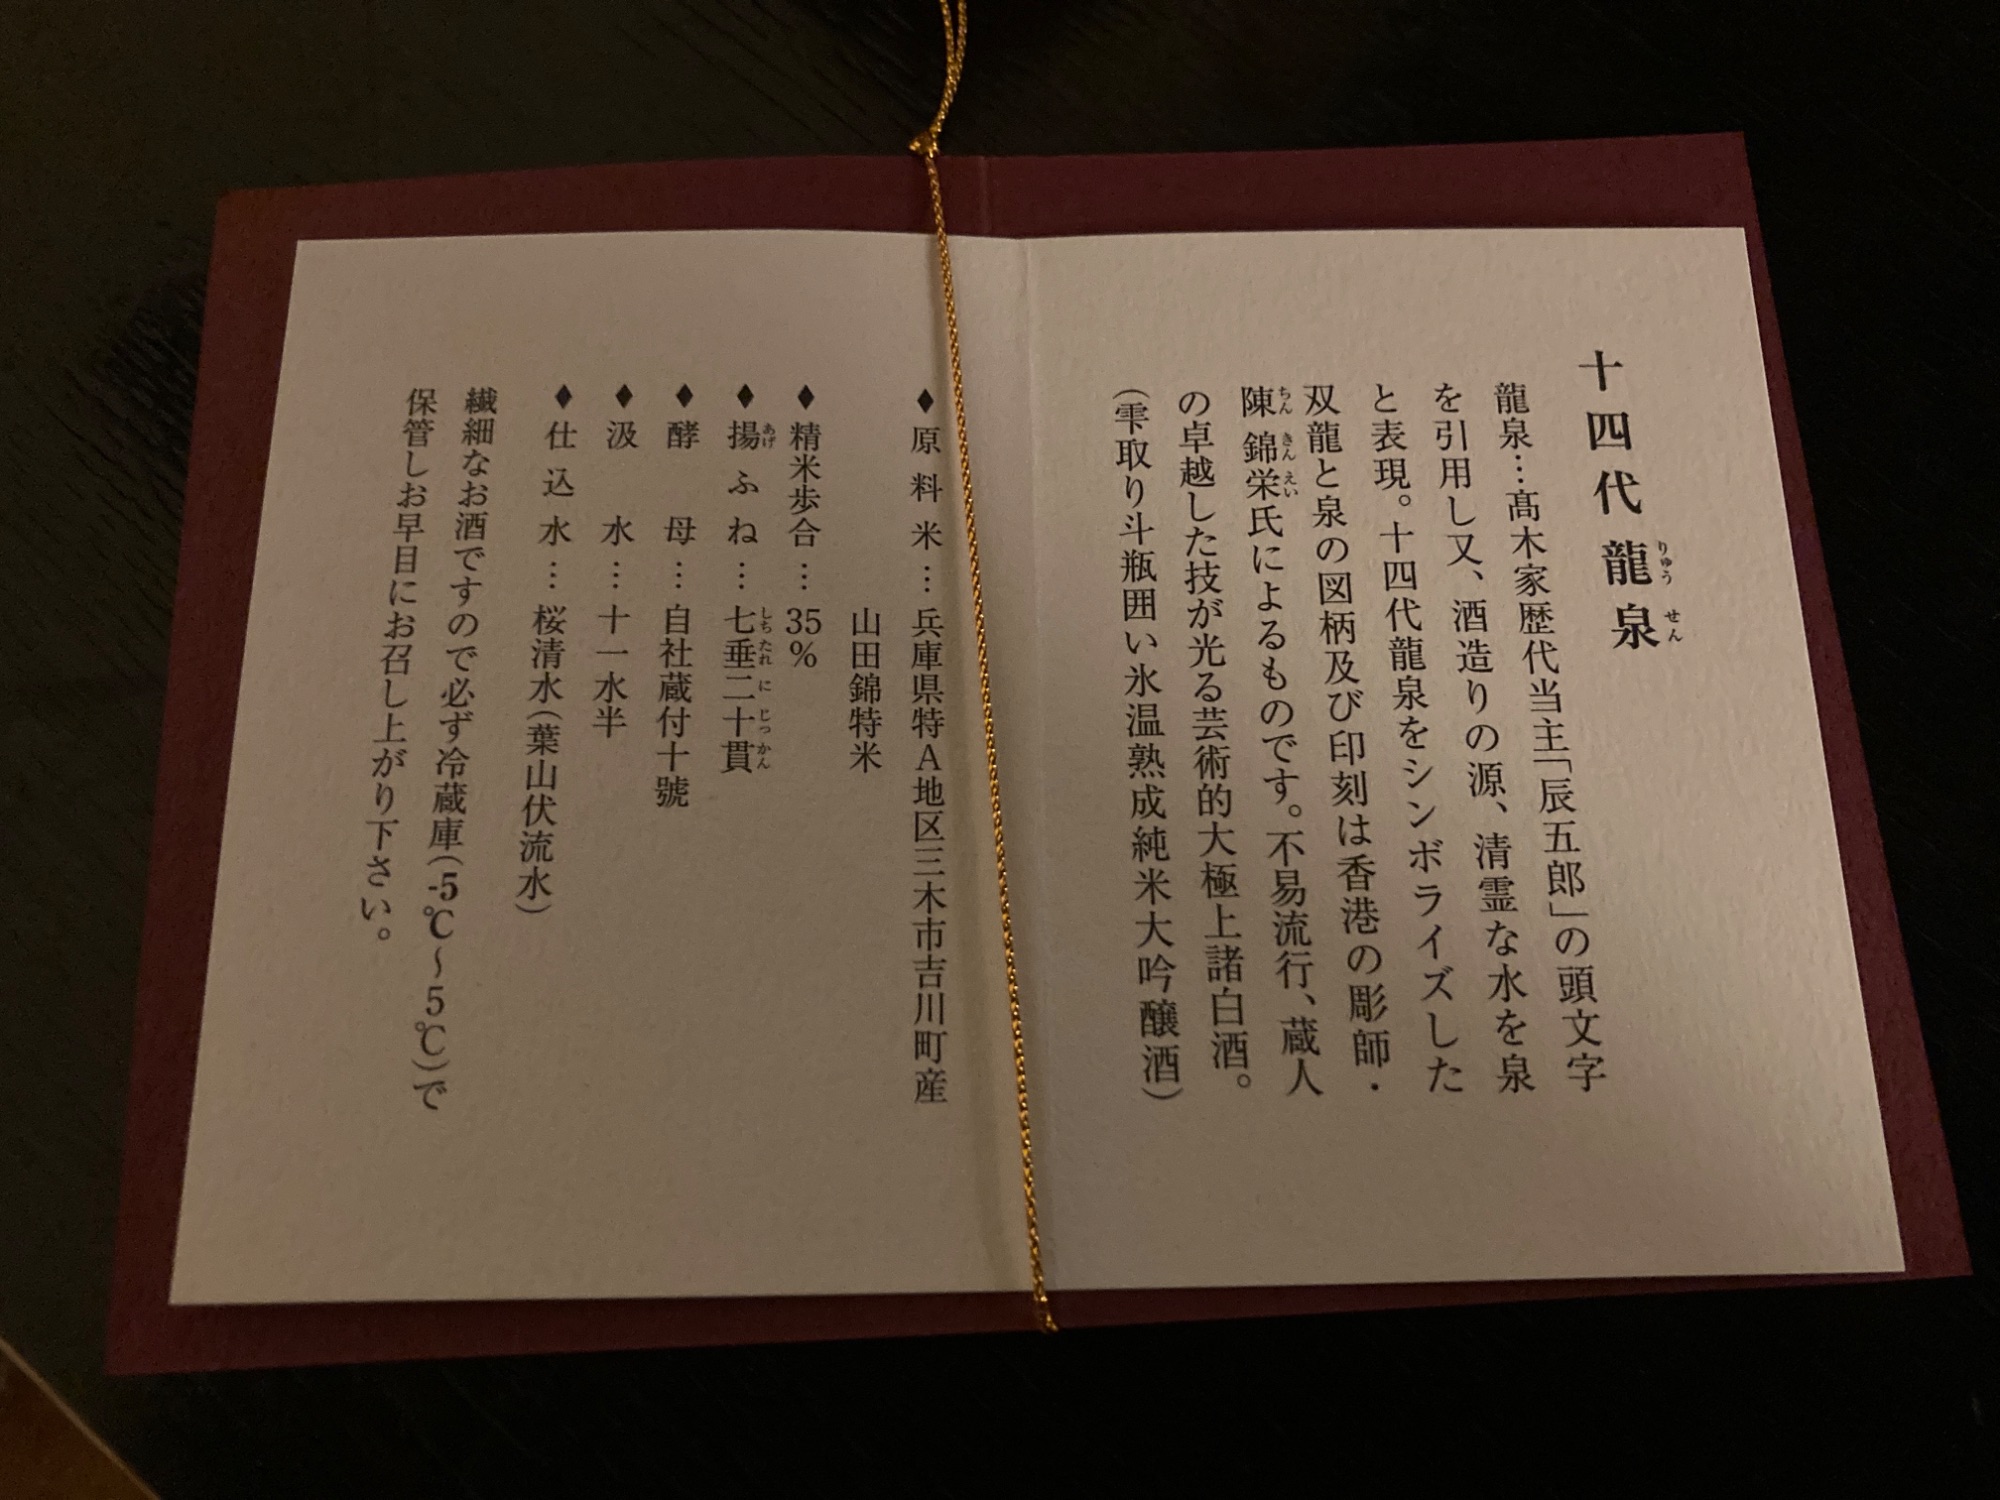 十四代 龍泉
龍泉…髙木家歴代当主「辰五郎」の頭文字
を引用し又、酒造りの源、清霊な水を泉
と表現。十四代龍泉をシンボライズした
双龍と泉の図柄及び印刻は香港の彫師・
陳 錦栄氏によるものです。不易流行、蔵人
の卓越した技が光る芸術的大極上諸白酒。
(雫取り斗瓶囲い氷温熟成純米大吟醸酒)
♦原料米…兵庫県特A地区三木市吉川町産
山田錦特米
♦精米歩合…35%
♦揚ふね…七垂二十貫
♦酵母…自社蔵付十號
♦汲水…十一水半
♦仕込水…桜清水(葉山伏流水)
繊細なお酒ですので必ず冷蔵庫(-5℃～5℃)で
保管しお早目にお召し上がり下さい。